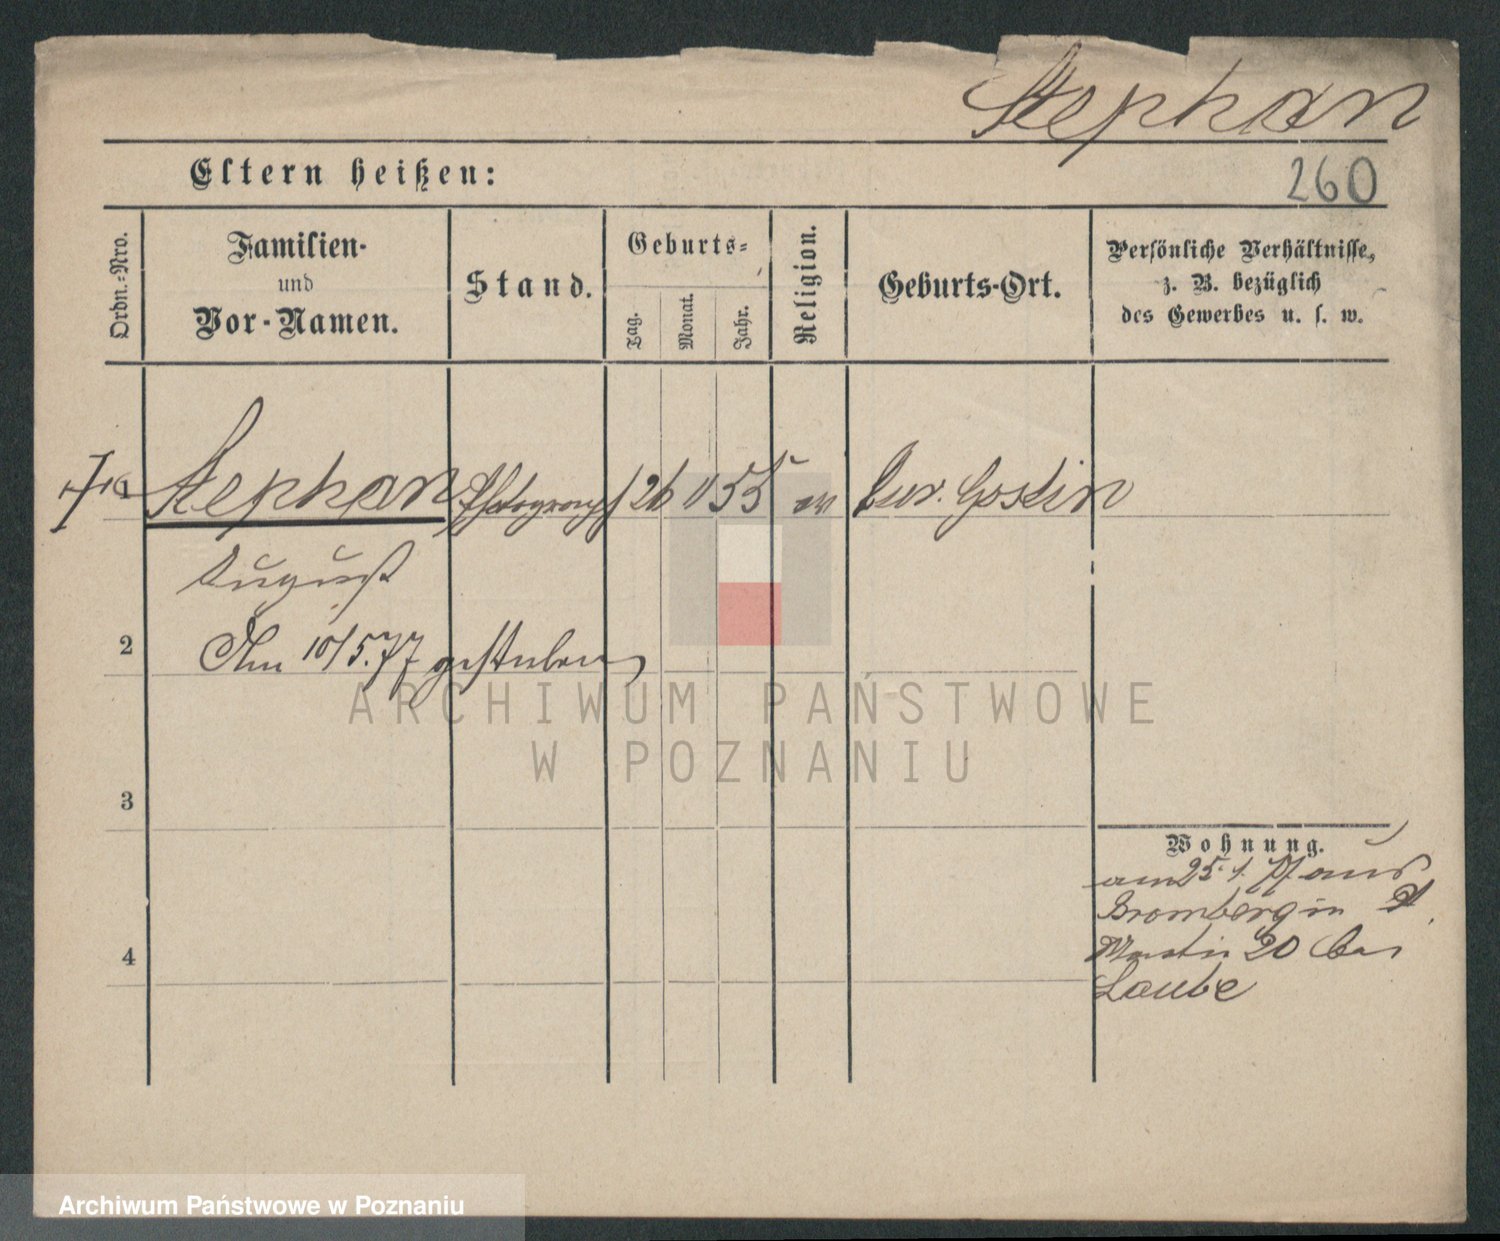 Stephan
Eltern heißen:
260
Ordn.-Nro.
Familien-
und
Vor-Namen.
Stand.
Geburts-
Tag.
Monat.
Jahr.
Religion.
Geburts-Ort.
Persönliche Verhältnisse,
z. B. bezüglich
des Gewerbes u. s. w.
1 Stephan Photograph 26 55 ev Gostin
August
2 Am 10/5.77 gestorben
ARCHIWUM PAŃSTWOWE
W POZNANIU
3
Wohnung.
am 25. 1. 77 aus
Bromberg in St.
4 Martin 20 bei
Laube
Archiwum Państwowe w Poznaniu